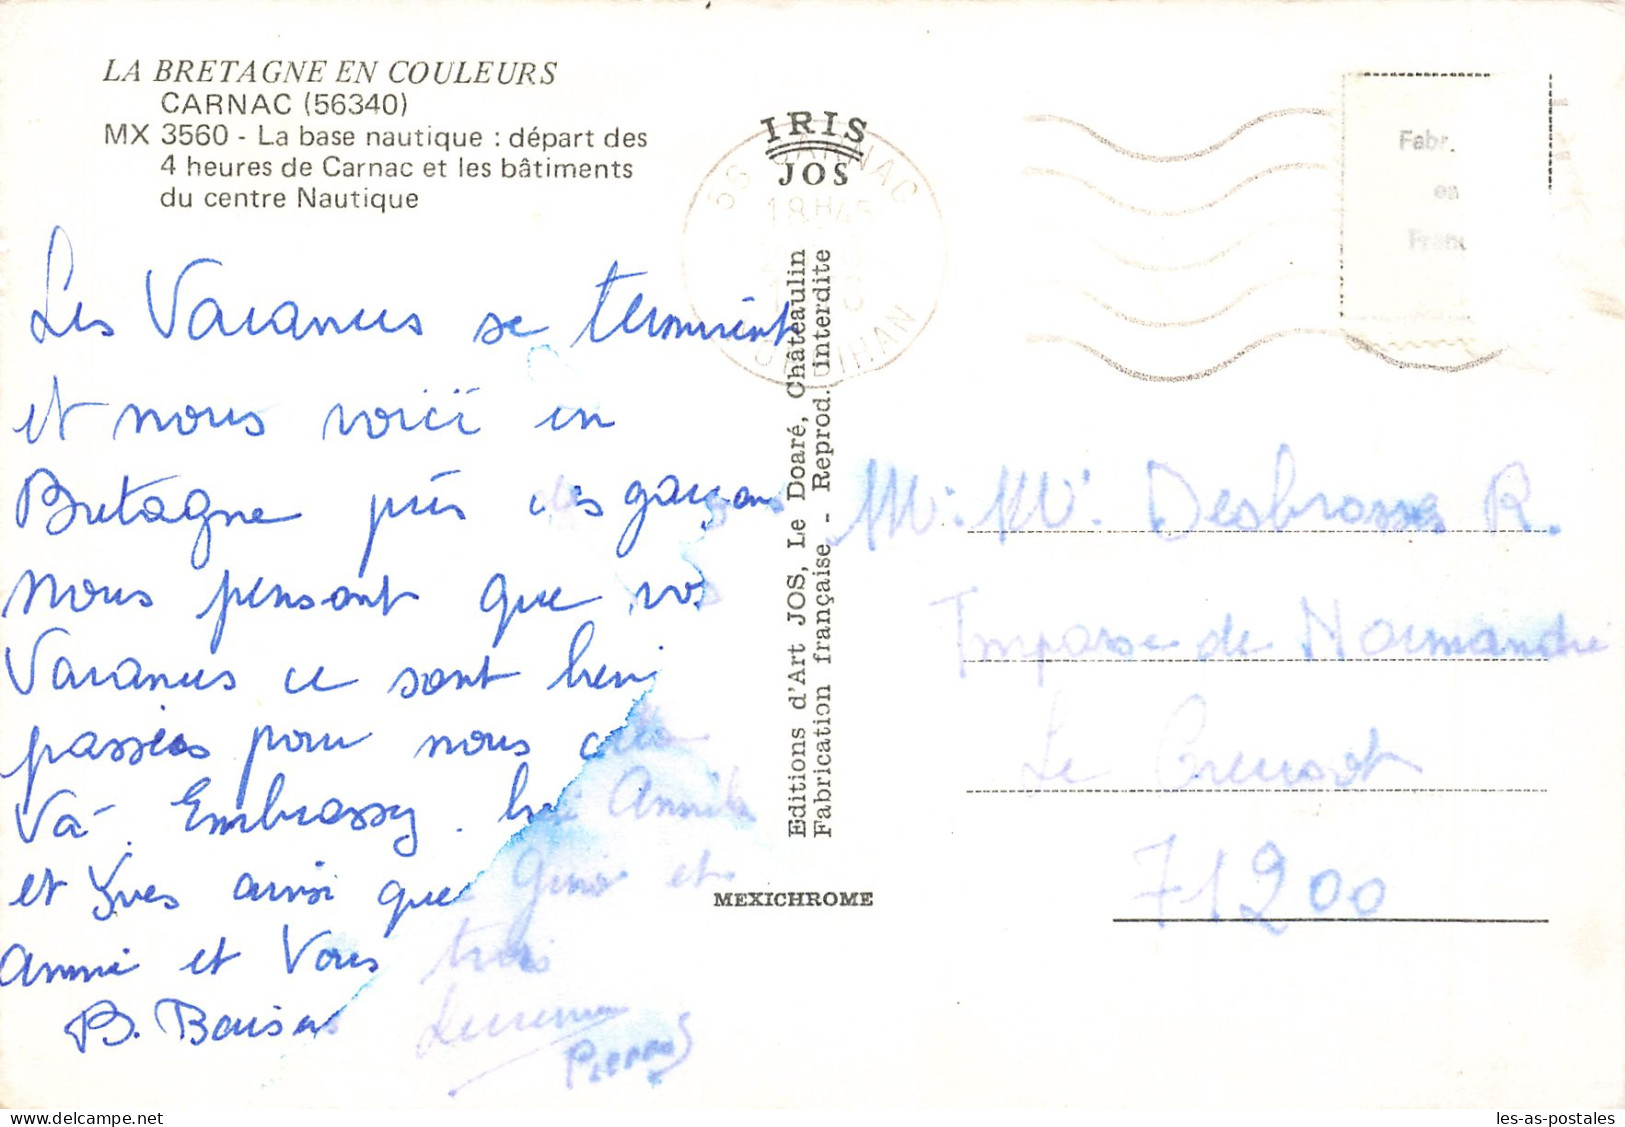 LA BRETAGNE EN COULEURS
CARNAC (56340)
MX 3560 - La base nautique : départ des
4 heures de Carnac et les bâtiments
du centre Nautique
Les Vacances se terminent
et nous voici en
Bretagne près des garçons
Nous pensont que vos
Vacances ce sont bien
passées pour nous cela
Va. Embrassez bien Annik
et Yves ainsi que Gino et
Annie et Vous trois
B. Baisers
Pierrot
IRIS
JOS
56 CARNAC
18H45
MORBIHAN
Editions d'Art JOS, Le Doaré, Châteaulin
Fabrication française - Reprod. interdite
MEXICHROME
Fabr.
en
Franc
Mr. Me. Desbrosses R.
Impasse de Normandie
Le Creusot
71200
les-as-postales